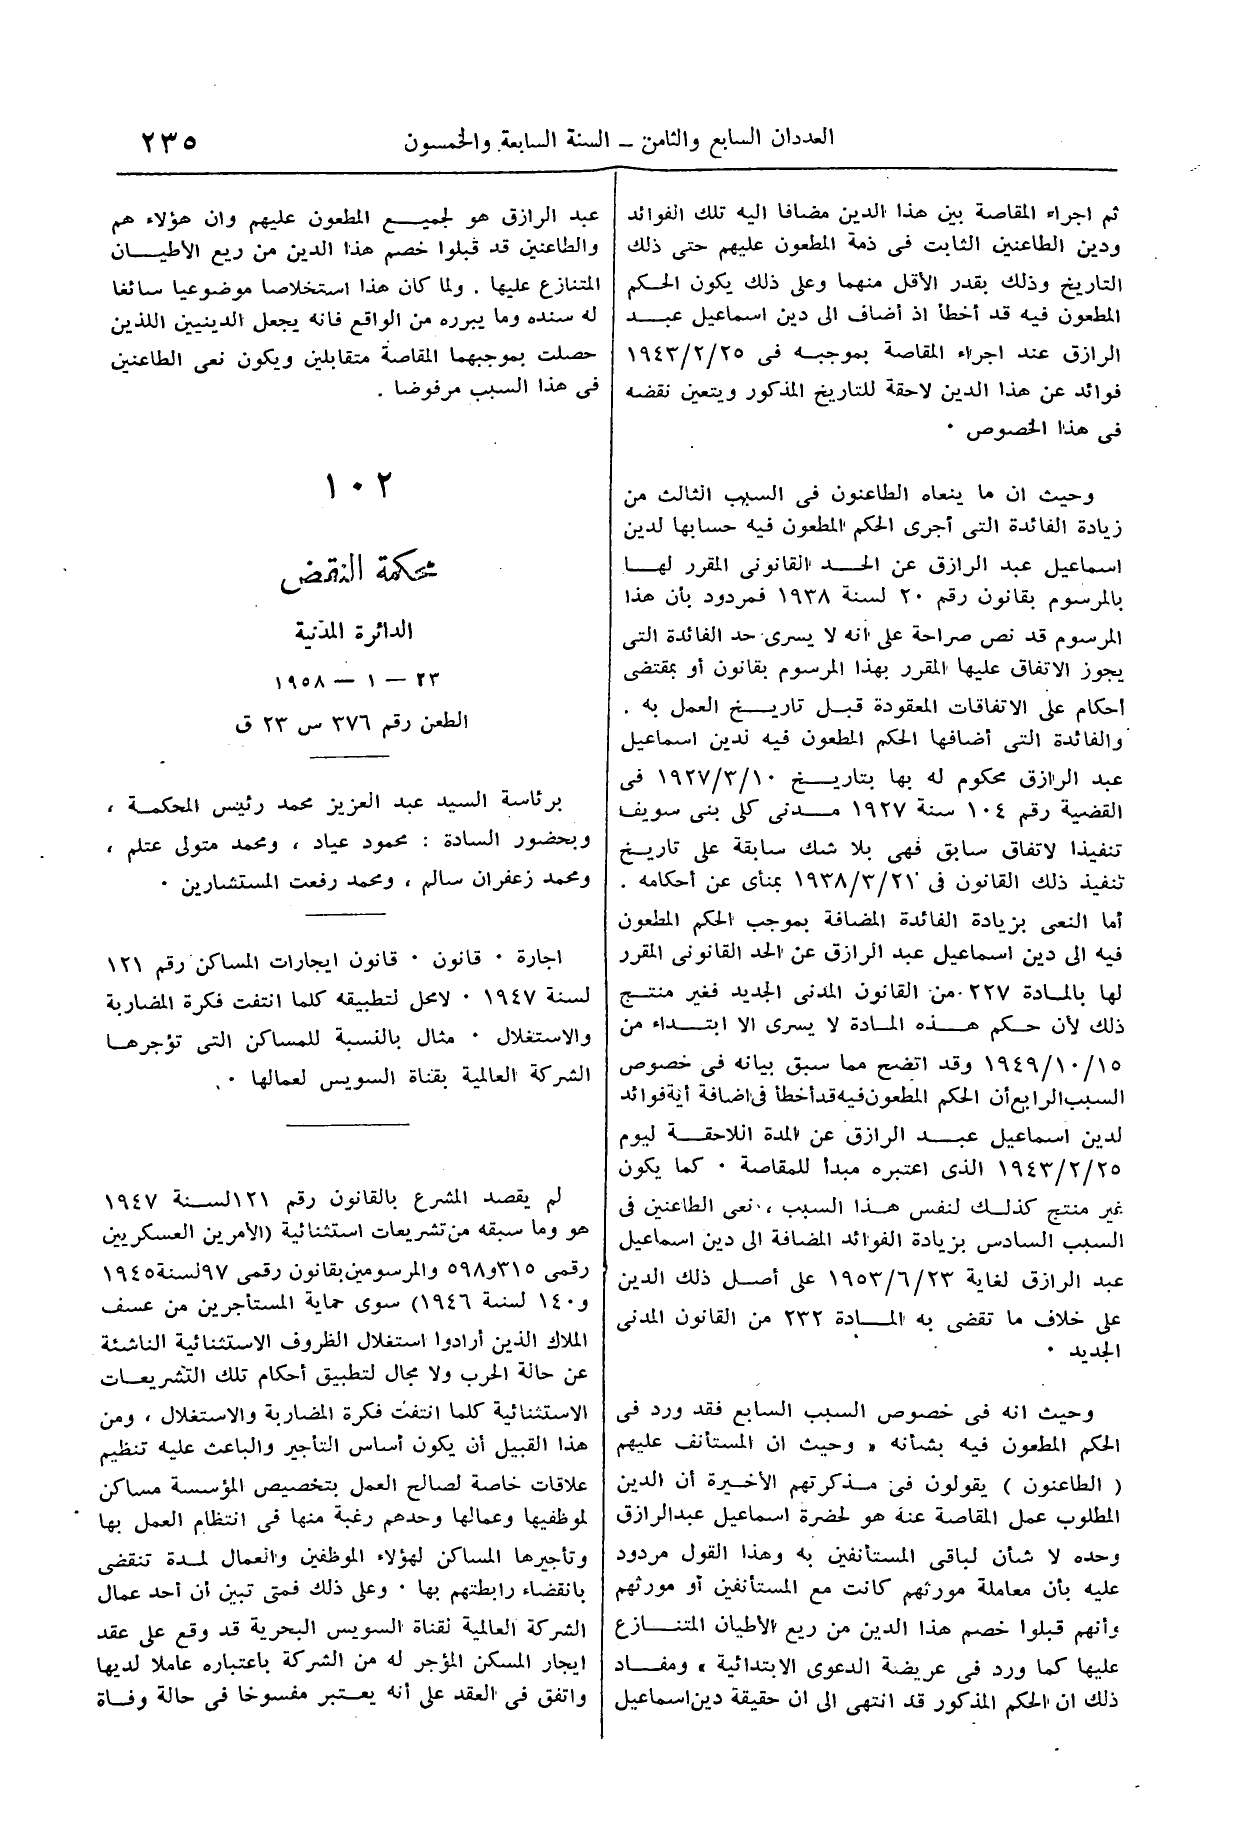 العددان السابع والثامن – السنة السابعة والخمسون
٢٣٥
ثم اجراء المقاصة بين هذا الدين مضافا اليه تلك الفوائد
ودين الطاعنين الثابت فى ذمة المطعون عليهم حتى ذلك
التاريخ وذلك بقدر الأقل منهما وعلى ذلك يكون الحكم
المطعون فيه قد أخطأ اذ أضاف الى دين اسماعيل عبد
الرازق عند اجراء المقاصة بموجبه فى ١٩٤٣/٢/٢٥
فوائد عن هذا الدين لاحقة للتاريخ المذكور ويتعين نقضه
فى هذا الخصوص ٠
وحيث ان ما ينعاه الطاعنون فى السبب الثالث من
زيادة الفائدة التى أجرى الحكم المطعون فيه حسابها لدين
اسماعيل عبد الرازق عن الحد القانونى المقرر لها
بالمرسوم بقانون رقم ٢٠ لسنة ١٩٣٨ فمردود بأن هذا
المرسوم قد نص صراحة على انه لا يسرى حد الفائدة التى
يجوز الاتفاق عليها المقرر بهذا المرسوم بقانون أو بمقتضى
أحكام على الاتفاقات المعقودة قبل تاريخ العمل به .
والفائدة التى أضافها الحكم المطعون فيه لدين اسماعيل
عبد الرازق محكوم له بها بتاريخ ١٩٢٧/٣/١٠ فى
القضية رقم ١٠٤ سنة ١٩٢٧ مدنى كلى بنى سويف
تنفيذا لاتفاق سابق فهى بلا شك سابقة على تاريخ
تنفيذ ذلك القانون فى ١٩٣٨/٣/٢١ بمنأى عن أحكامه .
أما النعى بزيادة الفائدة المضافة بموجب الحكم المطعون
فيه الى دين اسماعيل عبد الرازق عن الحد القانونى المقرر
لها بالمادة ٢٢٧ من القانون المدنى الجديد فغير منتج
ذلك لأن حكم هذه المادة لا يسرى الا ابتداء من
١٩٤٩/١٠/١٥ وقد اتضح مما سبق بيانه فى خصوص
السبب الرابع أن الحكم المطعون فيه قد أخطأ فى اضافة أية فوائد
لدين اسماعيل عبد الرازق عن المدة اللاحقة ليوم
١٩٤٣/٢/٢٥ الذى اعتبره مبدأ للمقاصة ٠ كما يكون
غير منتج كذلك لنفس هذا السبب ، نعى الطاعنين فى
السبب السادس بزيادة الفوائد المضافة الى دين اسماعيل
عبد الرازق لغاية ١٩٥٣/٦/٢٣ على أصل ذلك الدين
على خلاف ما تقضى به المادة ٢٣٢ من القانون المدنى
الجديد ٠
وحيث انه فى خصوص السبب السابع فقد ورد فى
الحكم المطعون فيه بشأنه « وحيث ان المستأنف عليهم
( الطاعنون ) يقولون فى مذكرتهم الأخيرة أن الدين
المطلوب عمل المقاصة عنه هو لحضرة اسماعيل عبدالرازق
وحده لا شأن لباقى المستأنفين به وهذا القول مردود
عليه بأن معاملة مورثهم كانت مع المستأنفين أو مورثهم
وأنهم قبلوا خصم هذا الدين من ريع الأطيان المتنازع
عليها كما ورد فى عريضة الدعوى الابتدائية » ومفاد
ذلك ان الحكم المذكور قد انتهى الى ان حقيقة دين اسماعيل
عبد الرازق هو لجميع المطعون عليهم وان هؤلاء هم
والطاعنين قد قبلوا خصم هذا الدين من ريع الأطيان
المتنازع عليها . ولما كان هذا استخلاصا موضوعيا سائغا
له سنده وما يبرره من الواقع فانه يجعل الدينيين اللذين
حصلت بموجبهما المقاصة متقابلين ويكون نعى الطاعنين
فى هذا السبب مرفوضا .
١٠٢
محكمة النقض
الدائرة المدنية
٢٣ – ١ – ١٩٥٨
الطعن رقم ٣٧٦ س ٢٣ ق
برئاسة السيد عبد العزيز محمد رئيس المحكمة ،
وبحضور السادة : محمود عياد ، ومحمد متولى عتلم ،
ومحمد زعفران سالم ، ومحمد رفعت المستشارين ٠
اجارة ٠ قانون ٠ قانون ايجارات المساكن رقم ١٢١
لسنة ١٩٤٧ ٠ لامحل لتطبيقه كلما انتفت فكرة المضاربة
والاستغلال ٠ مثال بالنسبة للمساكن التى تؤجرها
الشركة العالمية بقناة السويس لعمالها ٠
لم يقصد المشرع بالقانون رقم ١٢١لسنة ١٩٤٧
هو وما سبقه من تشريعات استثنائية (الأمرين العسكريين
رقمى ٣١٥و٥٩٨ والمرسومين بقانون رقمى ٩٧لسنة١٩٤٥
و١٤٠ لسنة ١٩٤٦) سوى حماية المستأجرين من عسف
الملاك الذين أرادوا استغلال الظروف الاستثنائية الناشئة
عن حالة الحرب ولا مجال لتطبيق أحكام تلك التشريعات
الاستثنائية كلما انتفت فكرة المضاربة والاستغلال ، ومن
هذا القبيل أن يكون أساس التأجير والباعث عليه تنظيم
علاقات خاصة لصالح العمل بتخصيص المؤسسة مساكن
لموظفيها وعمالها وحدهم رغبة منها فى انتظام العمل بها
وتأجيرها المساكن لهؤلاء الموظفين والعمال لمدة تنقضى
بانقضاء رابطتهم بها ٠ وعلى ذلك فمتى تبين أن أحد عمال
الشركة العالمية لقناة السويس البحرية قد وقع على عقد
ايجار المسكن المؤجر له من الشركة باعتباره عاملا لديها
واتفق فى العقد على أنه يعتبر مفسوخا فى حالة وفاة